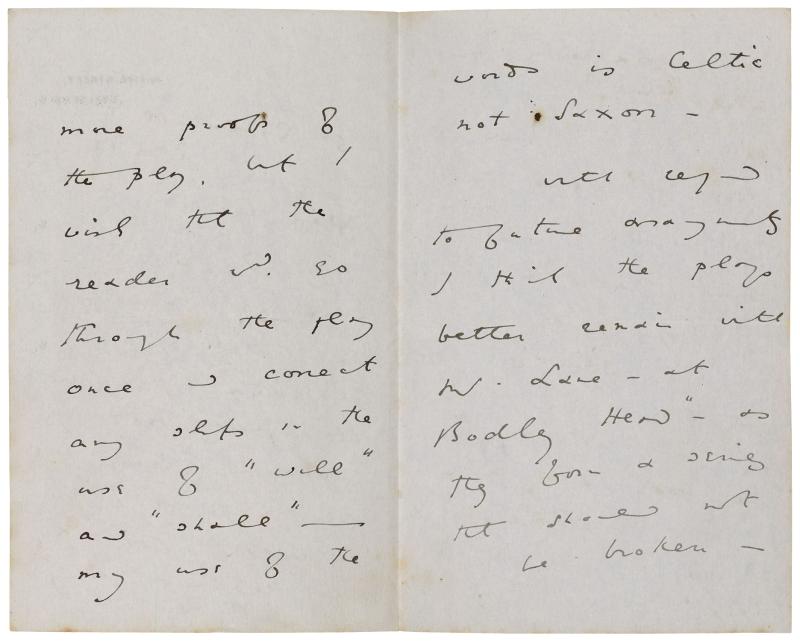 more proofs of
the play, but I
wish tht the
reader wd. go
through the play
once and correct
any slips in the
use of "will"
and "shall" —
my use of the
words is Celtic
not Saxon —
with regard
to future arrangements
I think the plays
better remain with
Mr. Lane — at
Bodley Head" — as
they form a series
tht should not
be broken —